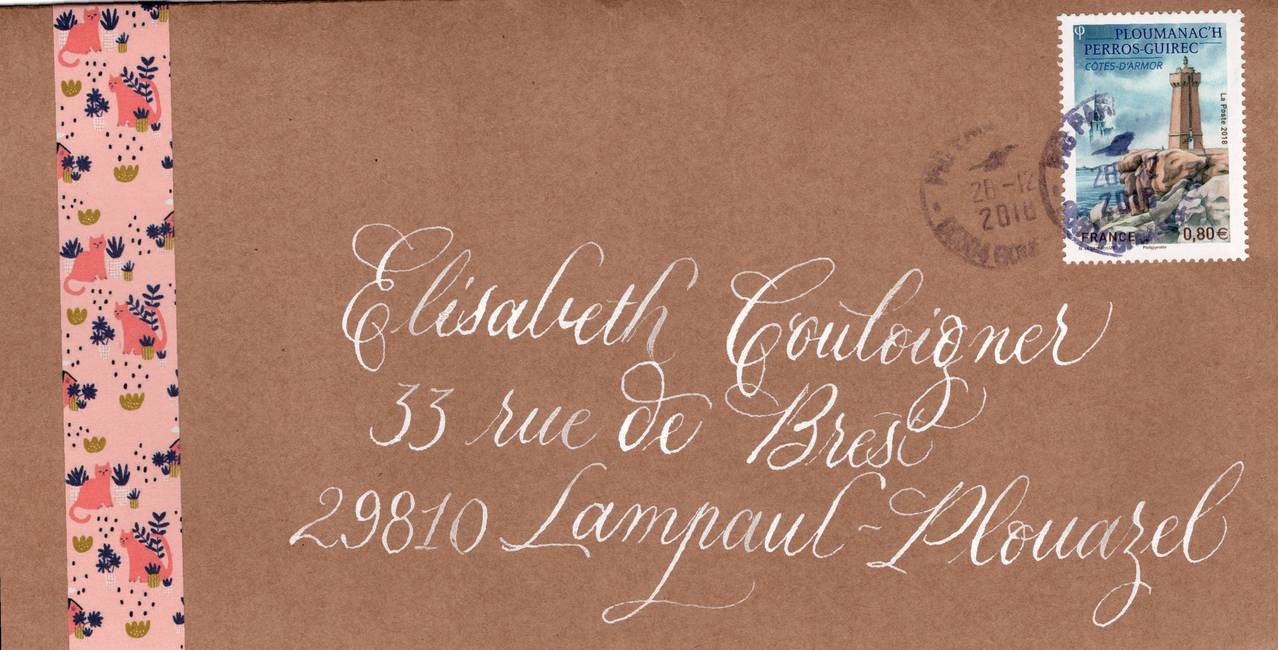 φ PLOUMANAC'H
PERROS-GUIREC
CÔTES-D'ARMOR
La Poste 2018
FRANCE
0,80€
28-12
2018
28
2018
Elisabeth Couloigner
33 rue de Brest
29810 Lampaul-Plouazel